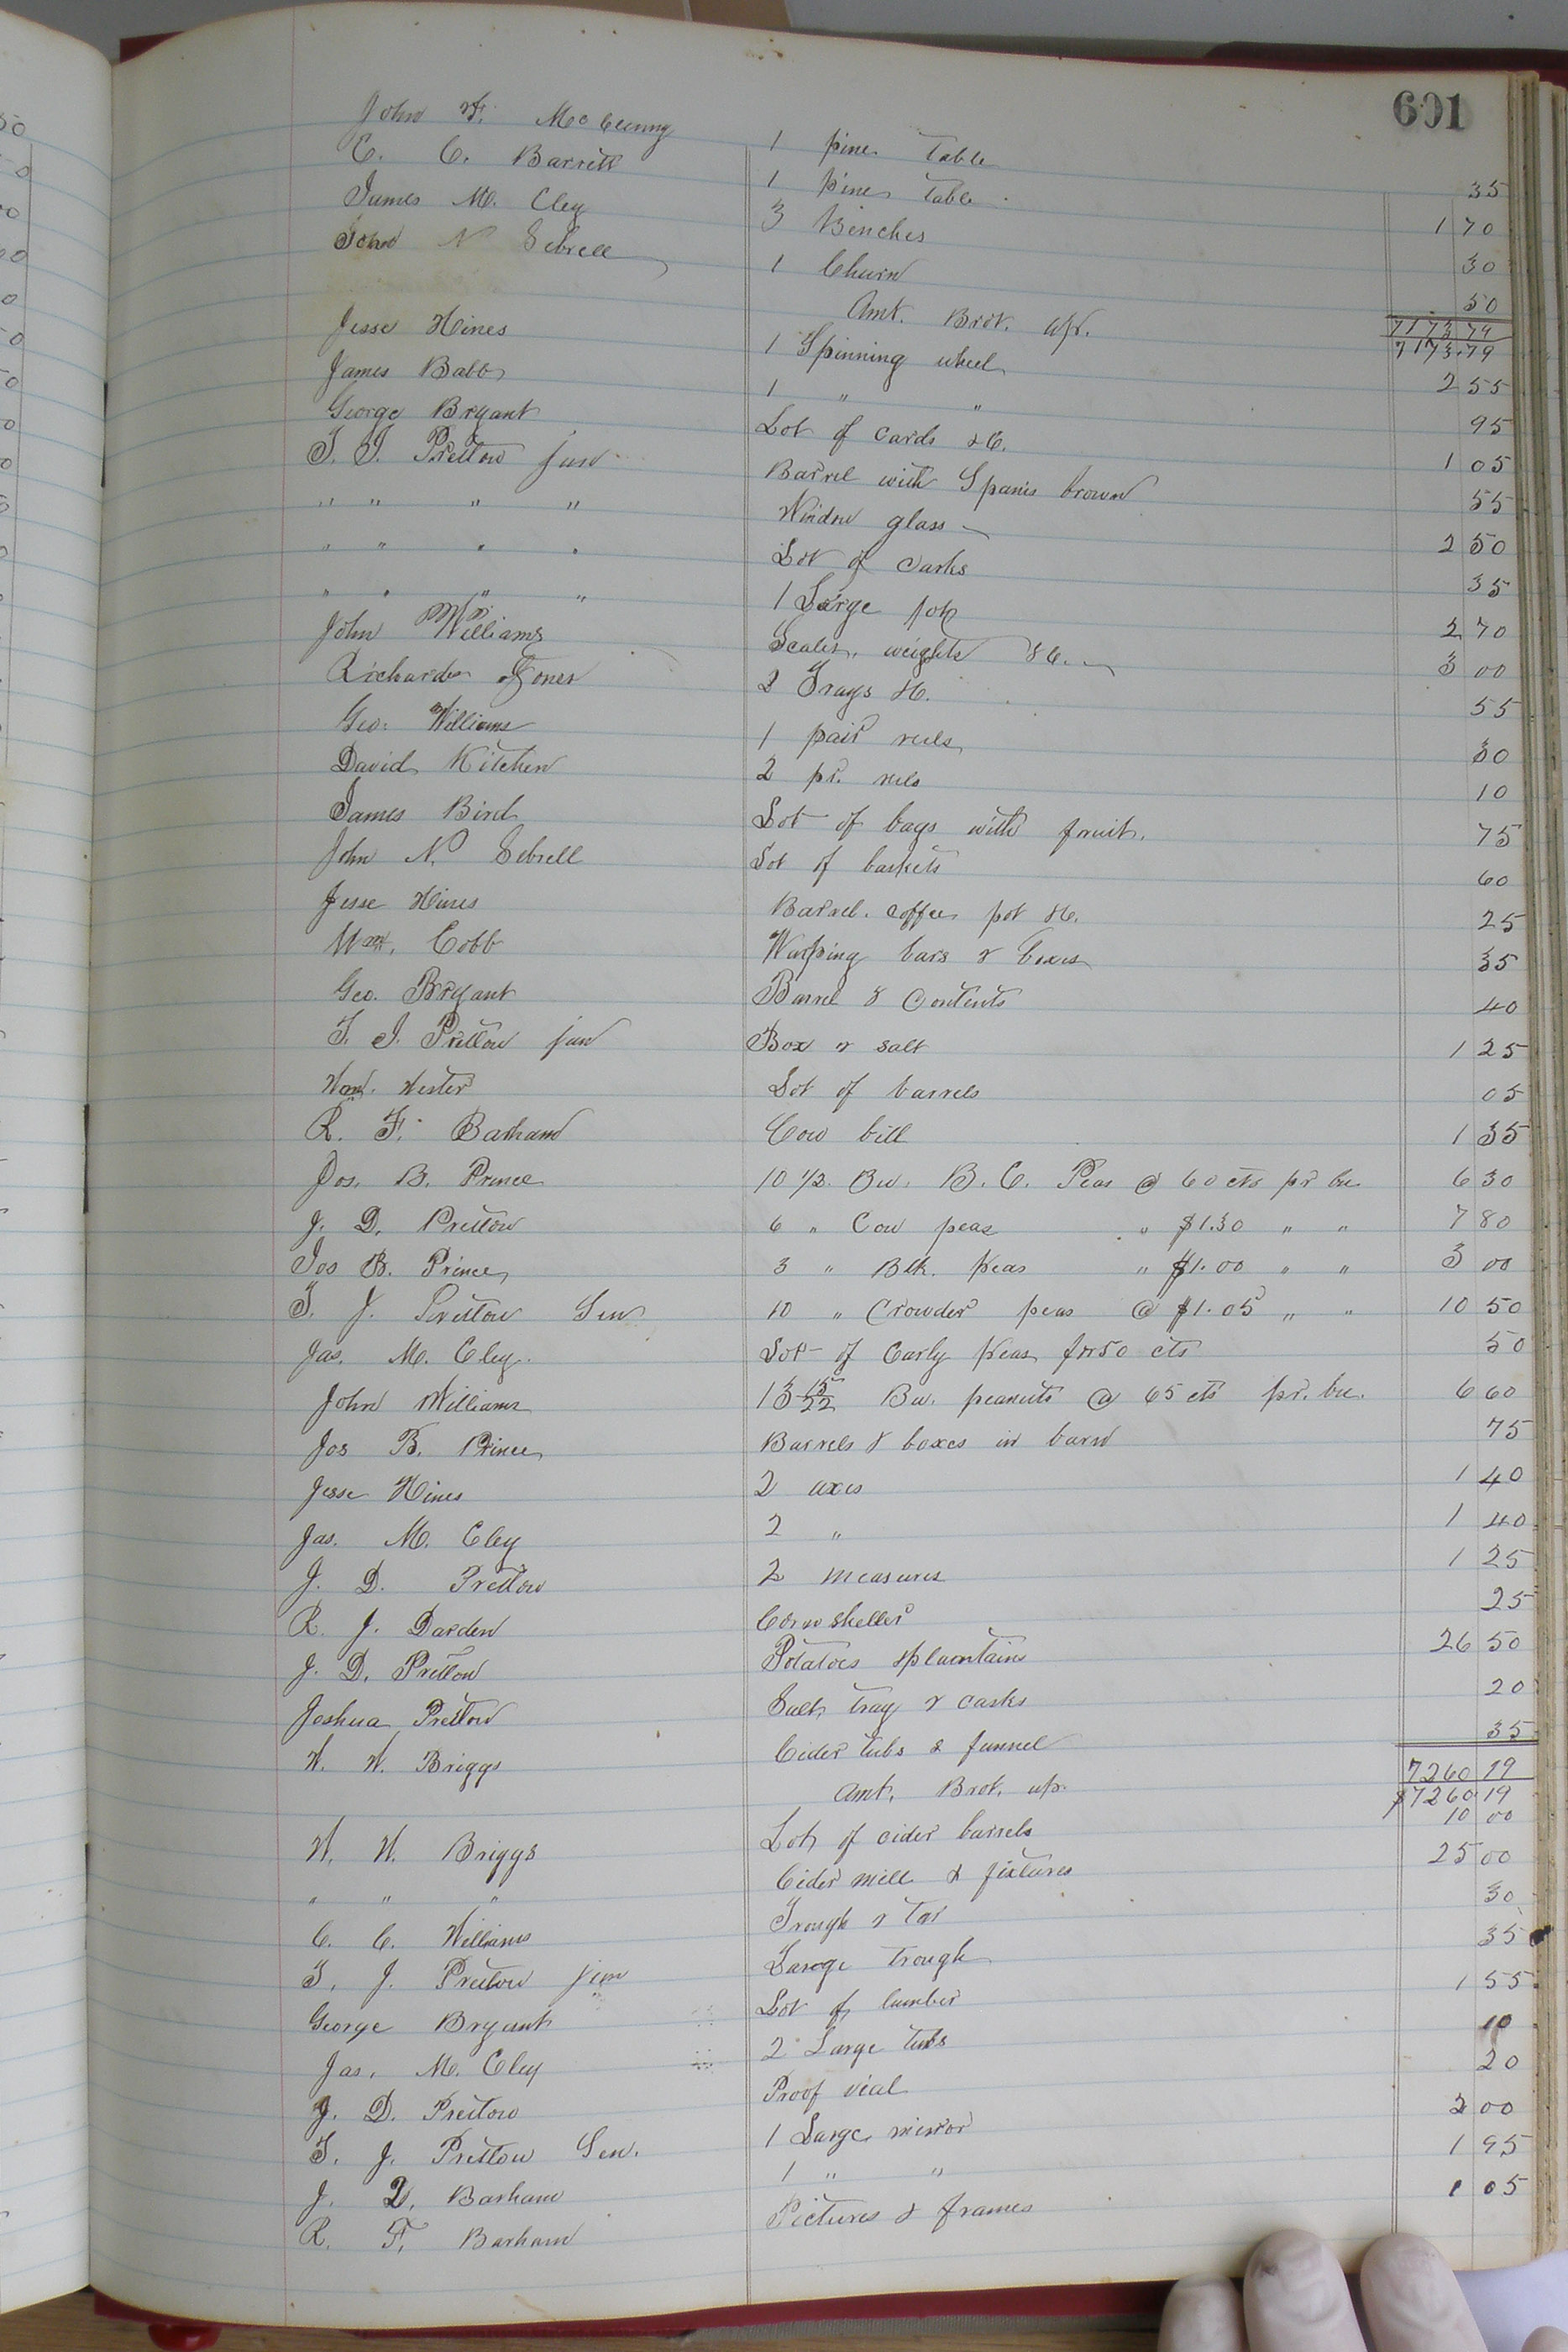 601
John F. McClenny 1 pine table 35
E. C. Barrett 1 pine table 1 70
James M. Cley 3 Benches 30
John N Sebrell 1 Churn 50
7173 79
Amt. Brot. up. 7173.79
Jesse Hines 1 Spinning wheel 2 55
James Babb 1 " " 95
George Bryant Lot of cards &C. 1 05
T. J. Pretlow jun Barrel with Spanis brown 55
" " " " Window glass 2 50
" " " " Lot of casks 35
" " " " 1 Large pot 2 70
John Williams Scales, weights &C. 3 00
Richard Jones 2 Trays &C. 55
Geo. Williams 1 pair reels 30
David Kitchen 2 pr. reels 10
James Bird Lot of bags with fruit. 75
John N. Sebrell Lot of baskets 60
Jesse Hines Barrel. coffee pot &C. 25
Wm. Cobb Warping bars & boxes 35
Geo. Bryant Barrel & Contents 40
T. J. Pretlow jun Box & salt 1 25
Wm. Wester Lot of barrels 05
R. F. Barham Cow bell 1 35
Jos. B. Prince 10 1/2 Bu. B. E. Peas @ 60 cts pr bu. 6 30
J. D. Pretlow 6 " Cow peas " $1.30 " " 7 80
Jos B. Prince 3 " Blk. Peas " $1.00 " " 3 00
T. J. Pretlow Sen 10 " Crowder peas @ $1.05 " " 10 50
Jas. M. Cley. Lot of Early Peas for 50 cts 50
John Williams 13 15/22 Bu. peanuts @ 65 cts pr. bu. 6 60
Jos B. Prince Barrels & boxes in barn 75
Jesse Hines 2 axes 1 40
Jas. M. Cley 2 " 1 40
J. D. Pretlow 2 measures 1 25
R. J. Darden Corn sheller 25
J. D. Pretlow Potatoes &plantains 26 50
Joshua Pretlow Salt, tray & casks 20
W. W. Briggs Cider tubs & funnel 35
7260 19
Amt. Brot. up. $7260 19
W. W. Briggs Lot of cider barrels 10 00
" " " Cider mill & fixtures 25 00
C. C. Williams Trough & tar 30
T. J. Pretlow jun Large trough 35
George Bryant Lot of lumber 1 55
Jas. M. Cley 2 Large tubs 10
J. D. Pretlow Proof vial 20
T. J. Pretlow Sen. 1 Large mirror 2 00
J. D. Barham 1 " " 1 95
R. F. Barham Pictures & frames 1 05